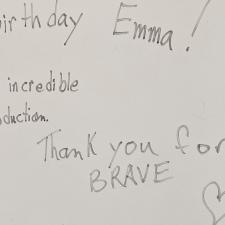 Birthday Emma!
incredible
Thank you for
BRAVE